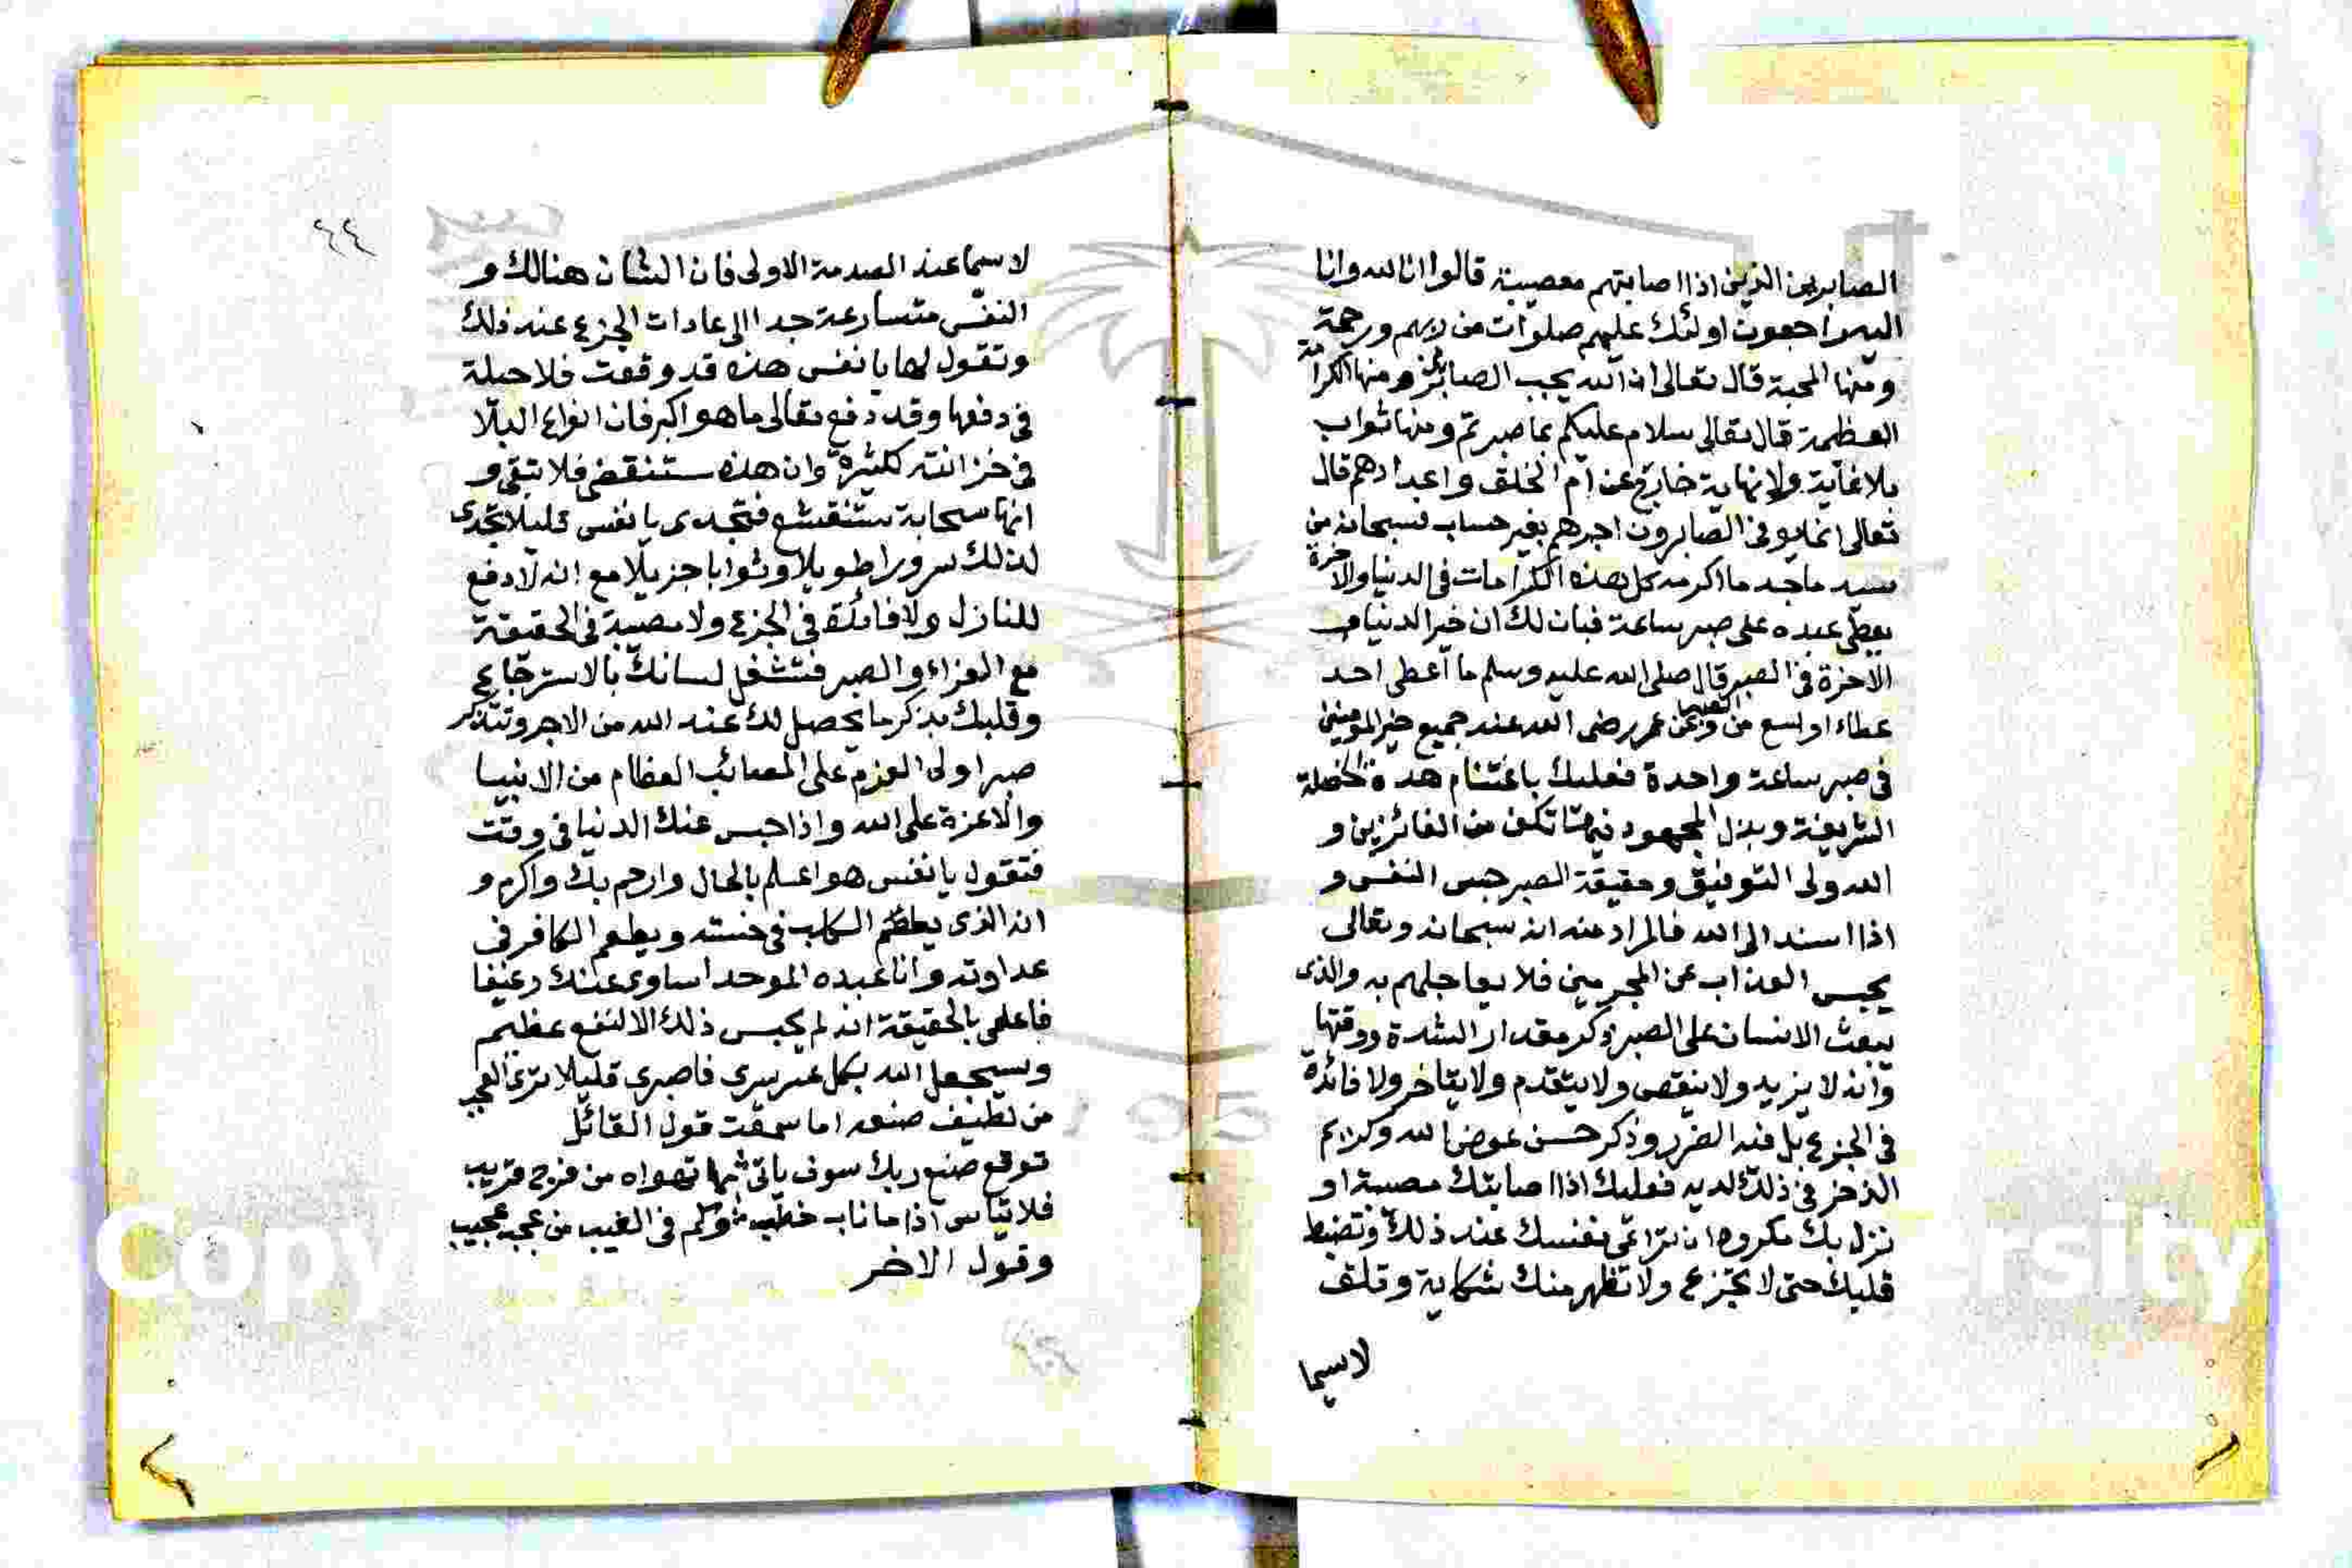 الصابرين الذين اذا اصابتهم مصيبة قالوا انا لله وانا
اليه راجعون اولئك عليهم صلوات من ربهم ورحمة
ومنها المحبة قال تعالى ان الله يحب الصابرين ومنها الكرامة
العظيمة قال تعالى سلام عليكم بما صبرتم ومنها ثواب
بلا غاية ولا نهاية خارج عن ام الخلق واعدادهم قال
تعالى انما يوفى الصابرون اجرهم بغير حساب فسبحانه من
سيد ماجد ما اكرمه كل هذه الكرامات في الدنيا والاخرة
يعطى عبده على صبر ساعة فبان لك ان خير الدنيا و
الاخرة في الصبر قال صلى الله عليه وسلم ما اعطى احد
عطاء اوسع من الصبر وعن عمر رضى الله عنه جميع خير المومنين
في صبر ساعة واحدة فعليك باغتنام هذه الخصلة
الشريفة وبذل المجهود فيها تكن من الفائزين و
الله ولى التوفيق وحقيقة الصبر حبس النفس و
اذا اسند الى الله فالمراد منه انه سبحانه وتعالى
يحبس العذاب عن المجرمين فلا يعاجلهم به والذى
يبعث الانسان على الصبر ذكر مقدار الشدة ووقتها
وانه لا يزيد ولا ينقص ولا يتقدم ولا يتاخر ولا فائدة
في الجزع بل فيه الضرر وذكر حسن عوض الله وكرايم
الذخر في ذلك لديه فعليك اذا اصابتك مصيبة او
نزل بك مكروه ان تراعى نفسك عند ذلك وتضبط
قلبك حتى لا تجزع ولا تظهر منك شكاية وقلق
لاسيما
٦٤
لاسيما عند الصدمة الاولى فان الشان هنالك و
النفس متسارعة جدا الى عادات الجزع عند ذلك
وتقول لها يا نفس هذه قد وقعت فلا حيلة
في دفعها وقد دفع تعالى ما هو اكبر فان انواع البلا
في خزانته كثيرة وان هذه ستنقضى فلا تبقى و
انها سحابة ستنقشع فتجلدى يا نفس قليلا تجدى
لذلك سرورا طويلا وثوابا جزيلا مع انه لا دفع
للنازل ولا فائدة في الجزع ولا مصيبة في الحقيقة
مع العزاء والصبر فتشغل لسانك بالاسترجاع
وقلبك بذكر ما يحصل لك عند الله من الاجر وتتذكر
صبر اولى العزم على المصائب العظام من الانبيا
والاعزة على الله واذا حبس عنك الدنيا في وقت
فتقول يا نفس هو اعلم بالحال وارحم بك واكرم و
انه الذى يطعم الكلب في خسته ويطعم الكافر في
عداوته وانا عبده الموحد اساوى عندك رغيفا
فاعلمى بالحقيقة انه لم يحبس ذلك الا لنفع عظيم
وسيجعل الله بكل عسر يسرى فاصبرى قليلا ترى العجب
من لطيف صنعه اما سمعت قول القائل
توقع صنع ربك سوف ياتى بما تهواه من فرج قريب
فلا تياس اذا ما ناب خطب فكم في الغيب من عجب عجيب
وقول الاخر
Copy
rsity